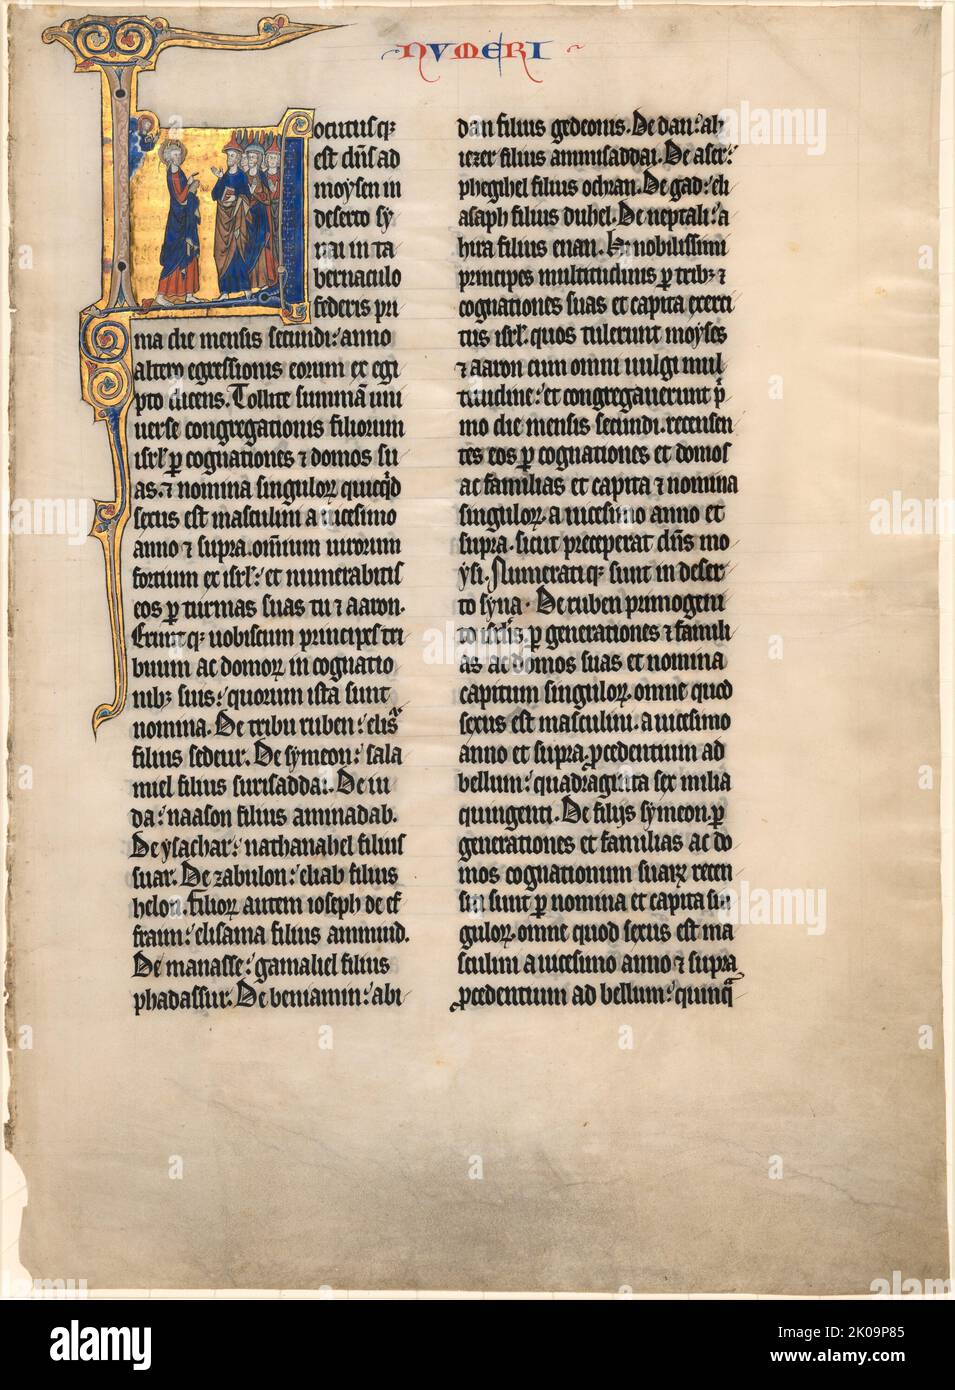 NVMERI
Locutusq;
est dn̄s ad
moysen in
deserto sy
nai in ta
bernaculo
federis pri
ma die mensis secundi: anno
altero egressionis eorum ex egi
pto dicens. Tollite summā uni
uerse congregationis filiorum
isrl̓ ꝑ cognationes ⁊ domos su
as. ⁊ nomina singuloꝝ quicq̇d
sexus est masculini a uicesimo
anno ⁊ supra. om̄ium uirorum
fortium ex isrl̓: et numerabitis
eos ꝑ turmas suas tu ⁊ aaron.
Eruntq; uobiscum principes tri
buum ac domoꝝ in cognatio
nibꝫ suis: quorum ista sunt
nomina. De tribu ruben: elisᵃ
filius sedeur. De symeon: sala
miel filius surisaddai. De iu
da: naason filius aminadab.
De ysachar: nathanahel filius
suar. De zabulon: eliab filius
helon. filioꝝ autem ioseph de ef
fraim: elisama filius ammiud.
De manasse: gamaliel filius
phadassur. De beniamin: abi
dan filius gedeonis. De dan: ab
iezer filius amisaddai. De aser:
phegihel filius ochran. De gad: eli
asaph filius duhel. De neptali: a
hira filius enan. Hi nobilissimi
principes multitudinis ꝑ tribꝫ ⁊
cognationes suas et capita exerci
tus isrl̓. quos tulerunt moyses
⁊ aaron cum omni uulgi mul
titudine: et congregauerunt p̄
mo die mensis secundi. recensen
tes eos ꝑ cognationes et domos
ac familias et capita ⁊ nomina
singuloꝝ. a uicesimo anno et
supra. sicut preceperat dn̄s mo
ysi. Numeratiq; sunt in deser
to syna. De ruben primogeni
to isrl̓is ꝑ generationes ⁊ famili
as ac domos suas et nomina
capitum singuloꝝ. omne quod
sexus est masculini. a uicesimo
anno et supra ꝓcedentium ad
bellum: quadraginta sex milia
quingenti. De filijs symeon. ꝑ
generationes et familias ac do
mos cognationum suaꝝ recen
siti sunt ꝑ nomina et capita sin
guloꝝ. omne quod sexus est ma
sculini a uicesimo anno ⁊ supra
ꝓcedentium ad bellum: quinq̄
alamy
Image ID: 2K09P85
www.alamy.com